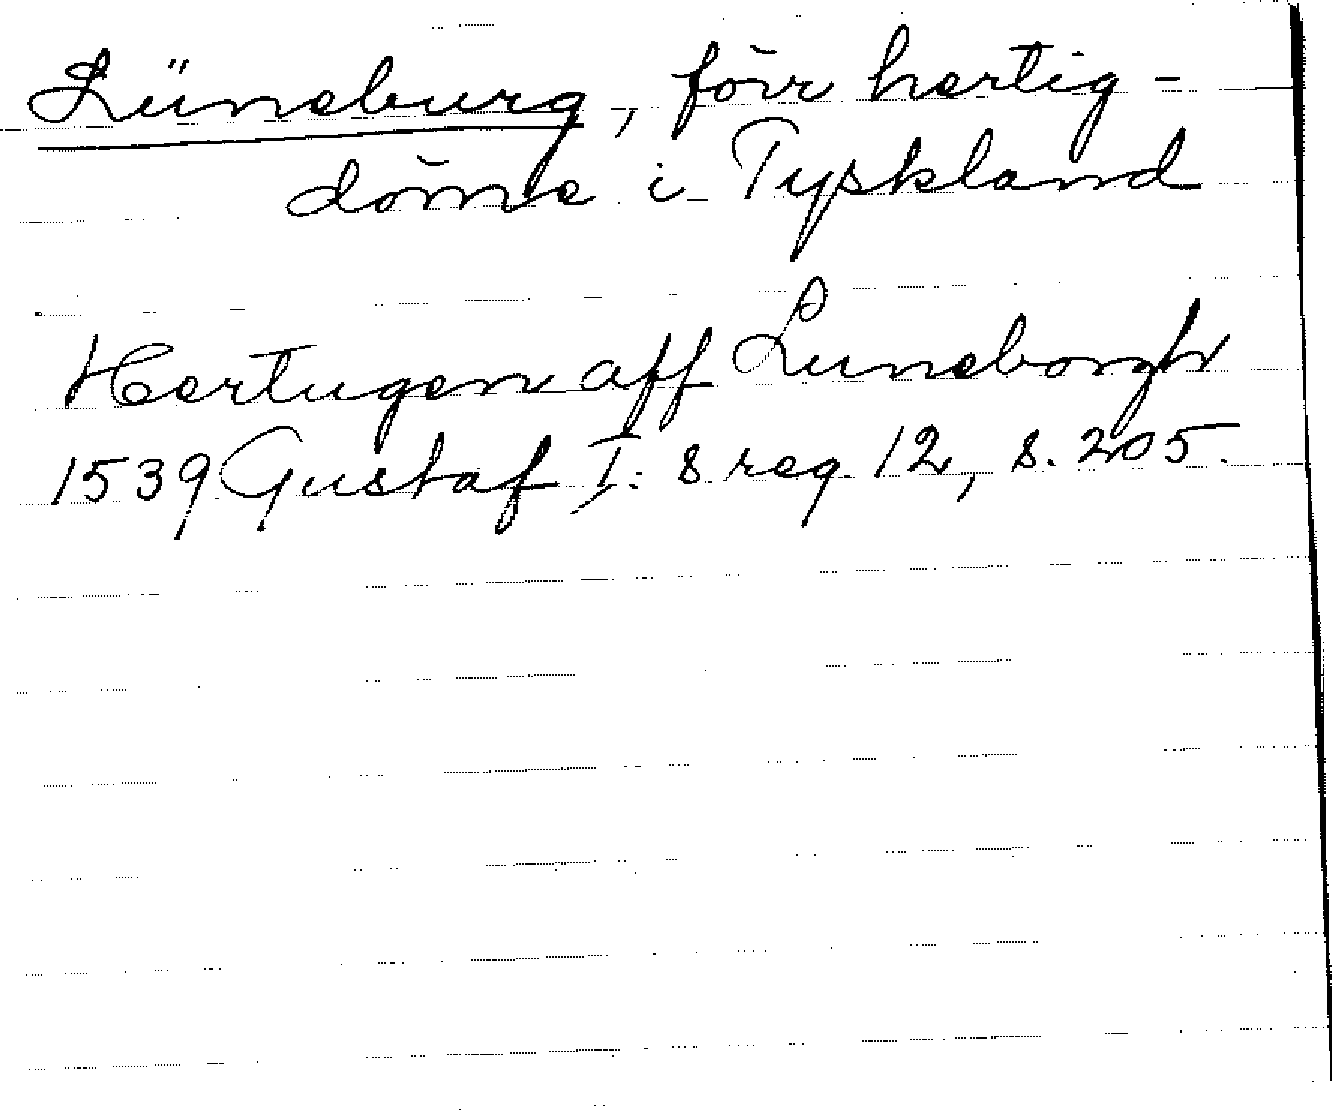 Lüneburg, förr hertig-
döme i Tyskland
Hertugen aff Luneborgh
1539 Gustaf I: s reg. 12, s. 205.